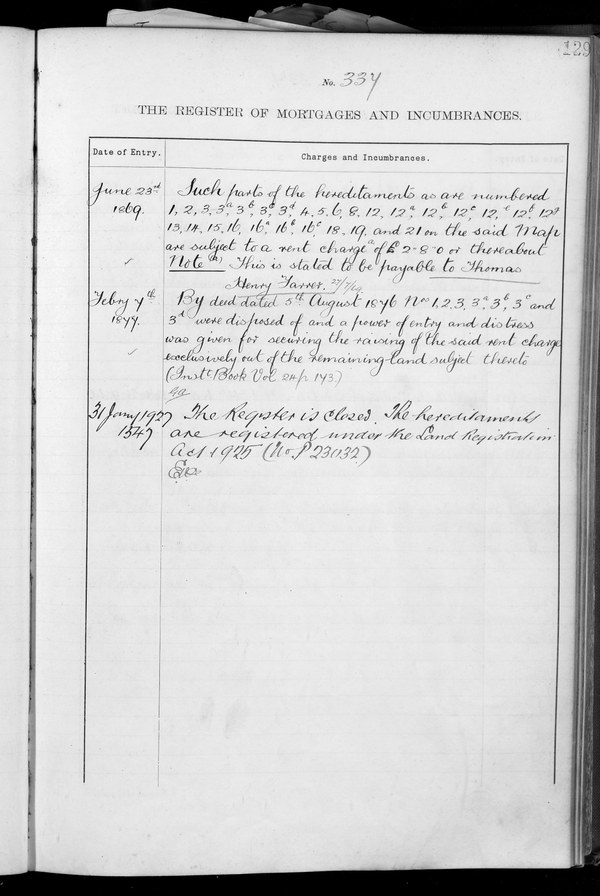 129
No. 337
THE REGISTER OF MORTGAGES AND INCUMBRANCES.
Date of Entry.
Charges and Incumbrances.
June 23rd
1869.
Such parts of the hereditaments as are numbered
1, 2, 3, 3a, 3b, 3c, 3d, 4, 5, 6, 8, 12, 12a, 12b, 12c, 12, 12f, 12g
13, 14, 15, 16, 16a, 16b, 16c, 18, 19, and 21 on the said Map
are subject to a rent charge a of £2-8-0 or thereabout
Note (a) This is stated to be payable to Thomas
Henry Farrer. 27/7/69
Febry 7th
1877.
By deed dated 5th August 1876 Nos 1, 2, 3, 3a, 3b, 3c and
3d were disposed of and a power of entry and distress
was given for securing the raising of the said rent charge
exclusively out of the remaining land subject thereto
(Inst. Book Vol 24 p. 143.)
31 Jany 1927
1547
The Register is closed. The hereditaments
are registered under the Land Registration
Act 1925 (No P 23132)